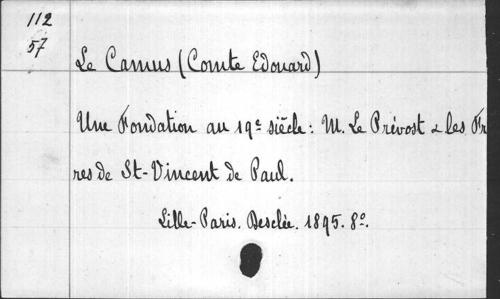 112
57
Le Camus (Comte Edouard)
Une Fondation au 19e siècle: M. Le Prévost & les Fr
res de St-Vincent de Paul.
Lille-Paris. Desclée. 1895. 8o.